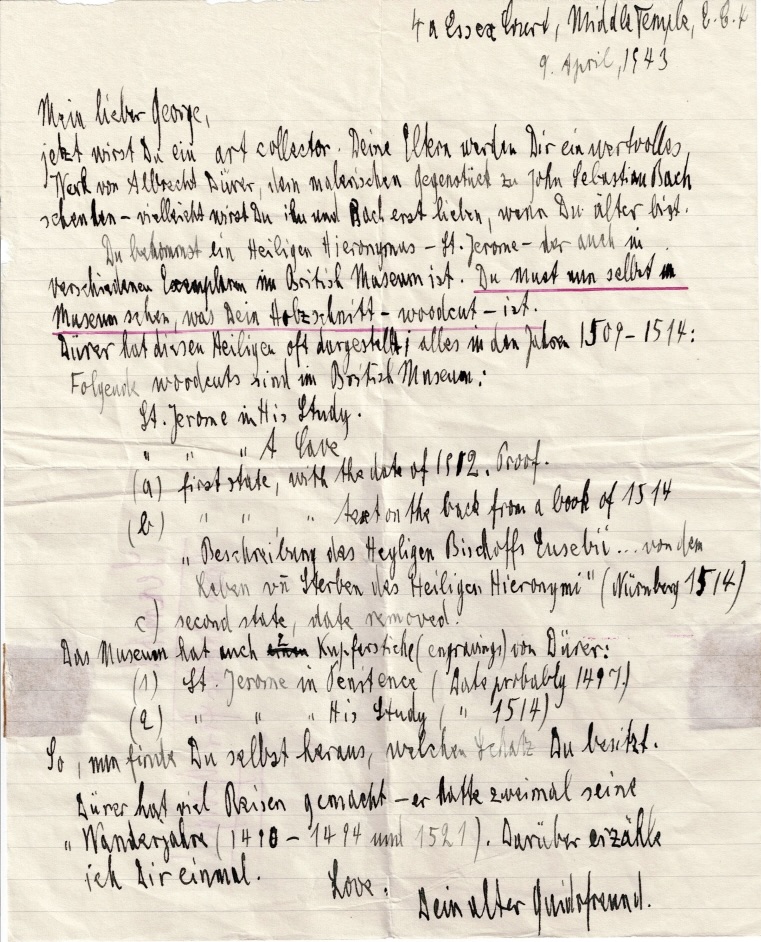 4a Essex Court, Middle Temple, E.C.4
9. April, 1943
Mein lieber George,
jetzt wirst Du ein art collector. Deine Eltern werden Dir ein wertvolles
Werk von Albrecht Dürer, dem malerischen Gegenstück zu John Sebastian Bach
schenken – vielleicht wirst Du ihn und Bach erst lieben, wenn Du älter bist.
Du bekommst ein Heiligen Hieronymus – St. Jerome – der auch in
verschiedenen Exemplaren im British Museum ist. Du must nun selbst im
Museum sehen, was Dein Holzschnitt – woodcut – ist.
Dürer hat diesen Heiligen oft dargestellt; alles in den Jahren 1509–1514:
Folgende woodcuts sind im British Museum:
St. Jerome in His Study.
" " " A Cave
(a) first state, with the date of 1512. Proof.
(b) " " , " text on the back from a book of 1514
„Beschreibung des Heyligen Bischoffs Eusebii... von dem
Leben vn̄ Sterben des Heiligen Hieronymi" (Nürnberg 1514)
c) second state, date removed.
Das Museum hat auch 2 Kupferstiche (engravings) von Dürer:
(1) St. Jerome in Penitence (Date probably 1497)
(2) " " " His Study ( " 1514)
So, nun finde Du selbst heraus, welchen Schatz Du besitzt.
Dürer hat viel Reisen gemacht – er hatte zweimal seine
„Wanderjahre (1490 – 1494 und 1521). Darüber erzähle
ich Dir einmal.
Love.
Dein alter Guidofreund.